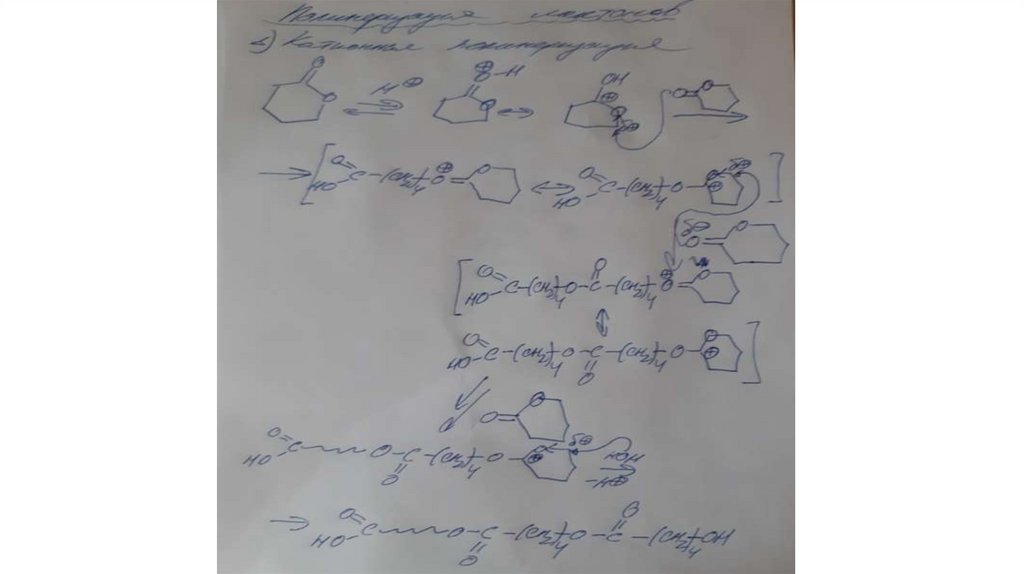 Полимеризация лактонов
2) Катионная полимеризация
O O H⊕ ⊕O-H O OH ⊕ O δ⊕ O= O
O= HO C-(CH2)4 O⊕= O O= HO C-(CH2)4 O- O ⊕ δ⊕
δ⊖ O= O
O= HO C-(CH2)4 O-C(=O)-(CH2)4 O⊕= O
O= HO C-(CH2)4 O-C(=O)-(CH2)4 O- O ⊕
O= O
O= HO C O-C(=O)-(CH2)4 O- O ⊕ δ⊕ HOH -H⊕
O= HO C O-C(=O)-(CH2)4 O-C(=O)-(CH2)4 OH